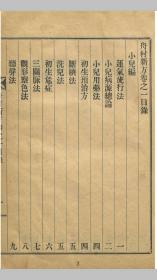 舟村新方卷之一目錄
小兒編
運氣流行法 一
小兒病源總論 二
小兒用藥法 四
初生預治方 四
斷臍法 五
洗兒法 五
初生危症 六
三關脉法 七
觀形察色法 八
聽聲法 九